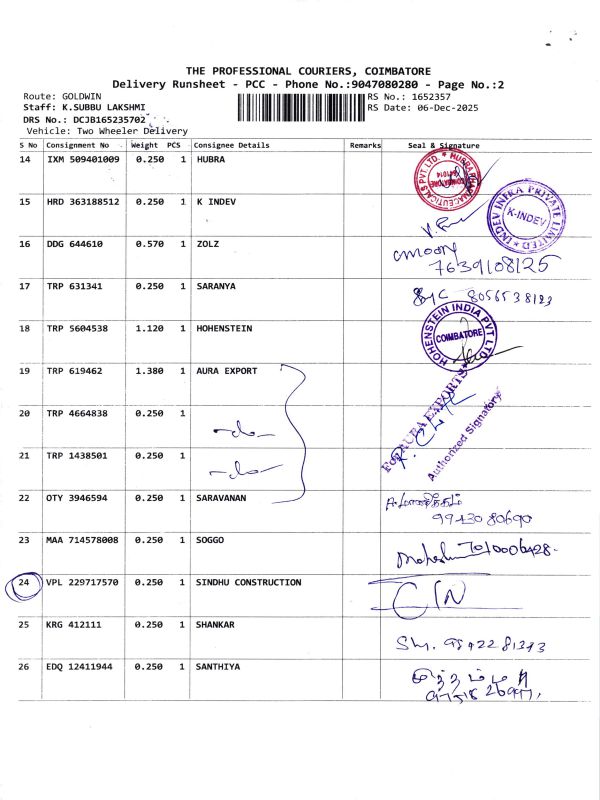 THE PROFESSIONAL COURIERS, COIMBATORE
Delivery Runsheet - PCC - Phone No.:9047080280 - Page No.:2
Route: GOLDWIN
Staff: K.SUBBU LAKSHMI
DRS No.: DCJB165235702
Vehicle: Two Wheeler Delivery
RS No.: 1652357
RS Date: 06-Dec-2025
S No Consignment No Weight PCS Consignee Details Remarks Seal & Signature
14 IXM 509401009 0.250 1 HUBRA
15 HRD 363188512 0.250 1 K INDEV
INDEV INFRA PRIVATE LIMITED
K-INDEV
16 DDG 644610 0.570 1 ZOLZ
7639108125
17 TRP 631341 0.250 1 SARANYA
18 TRP 5604538 1.120 1 HOHENSTEIN
HOHENSTEIN INDIA PVT LTD
COIMBATORE
19 TRP 619462 1.380 1 AURA EXPORT
For AURA EXPORTS
Authorized Signatory
20 TRP 4664838 0.250 1
-do-
21 TRP 1438501 0.250 1
-do-
22 OTY 3946594 0.250 1 SARAVANAN
99430 80690
23 MAA 714578008 0.250 1 SOGGO
24 VPL 229717570 0.250 1 SINDHU CONSTRUCTION
25 KRG 412111 0.250 1 SHANKAR
26 EDQ 12411944 0.250 1 SANTHIYA